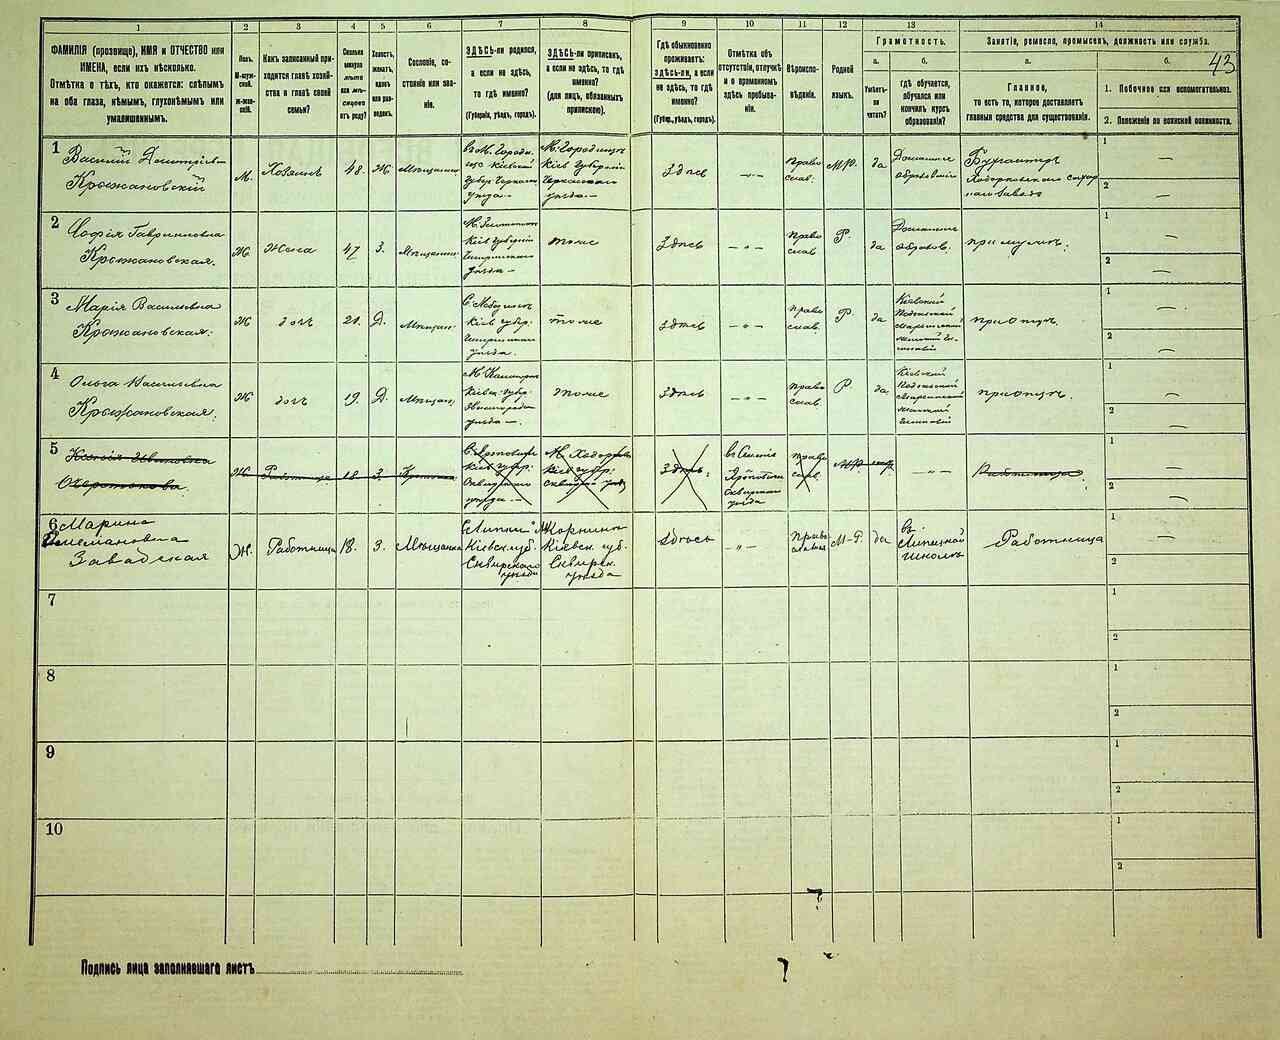 1
2
3
4
5
6
7
8
9
10
11
12
13
14
ФАМИЛІЯ (прозвище), ИМЯ и ОТЧЕСТВО или
ИМЕНА, если ихъ нѣсколько.
Отмѣтка о тѣхъ, кто окажется: слѣпымъ
на оба глаза, нѣмымъ, глухонѣмымъ или
умалишеннымъ.
Полъ.
М-муж-
ской.
Ж-жен-
скій.
Какъ записанный при-
ходится главѣ хозяй-
ства и главѣ своей
семьи?
Сколько
минуло
лѣтъ
или мѣ-
сяцевъ
отъ роду?
Холостъ,
женатъ,
вдовъ
или раз-
веденъ.
Сословіе, со-
стояніе или зва-
ніе.
ЗДѢСЬ-ли родился,
а если не здѣсь,
то гдѣ именно?
(Губернія, уѣздъ, городъ).
ЗДѢСЬ-ли приписанъ,
а если не здѣсь, то гдѣ
именно?
(для лицъ, обязанныхъ
припискою).
Гдѣ обыкновенно
проживаетъ:
здѣсь-ли, а если
не здѣсь, то гдѣ
именно?
(Губер., уѣздъ, городъ).
Отмѣтка объ
отсутствіи, отлучкѣ
и о временномъ
здѣсь пребыва-
ніи.
Вѣроиспо-
вѣданіе.
Родной
языкъ.
Грамотность.
а.
б.
Умѣетъ-
ли
читать?
гдѣ обучается,
обучался или
кончилъ курсъ
образованія?
Занятіе, ремесло, промыселъ, должность или служба.
43
а.
б.
Главное,
то есть то, которое доставляетъ
главныя средства для существованія.
1. Побочное или вспомогательное.
2. Положеніе по воинской повинности.
1
Василій Дмитріевъ
Крыжановскій
М.
Хозяинъ
48.
Ж
Мѣщанинъ
М. Городище
Кіев Губерніи
Черкасскаго
уѣзда
Здѣсь
—„—
Право
слав.
М.Р.
да
Домашнее
образованіе
Бухгалтер
1
—
2
—
2
Софія Гавриловна
Крыжановская.
Ж
Жена
47
З.
Мѣщанин.
Кіев Губерніи
уѣзда —
тоже
Здѣсь
— „ —
Право
слав
Р.
да
Домашнее
образов.
при мужѣ.
1
—
2
—
3
Марія Васильевна
Крыжановская.
Ж
дочь
21.
Д.
Мѣщан.
Кіев. губер.
уѣзда.
тоже
Здѣсь
— „ —
Право
слав
Р.
да
Кіевскій
при отцѣ.
1
—
2
—
4
Ольга Васильевна
Крыжановская.
Ж
дочь
19.
Д.
Мѣщан.
Кіевск. Губер.
уѣзда —.
Тоже
Здѣсь
— „ —
Право
слав.
Р.
да
Кіевскій
при отцѣ.
1
—
2
—
5
Ксенія Ивановна
Ж.
Работница
18
З.
Кіев губер.
Сквирскаго
уѣзда —
Кіев губ.
Сквирск. уѣзд
Здѣсь.
Сквирскаго
уѣзда
Право
слав.
— „ —
Работница.
1
—
2
—
6
Марина
Завадская
Ж.
Работница
18.
З.
Мѣщанка
с. Липки
Кіевск. губ.
Сквирскаго
уѣзда
М. Корнинъ
Кіевск. губ.
Сквирск.
уѣзда
Здѣсь
— „ —
Право
славная
М-Р.
да
въ
Липецкой
школѣ
Работница
1
—
2
—
7
1
2
8
1
2
9
1
2
10
1
2
Подпись лица заполнявшаго листъ